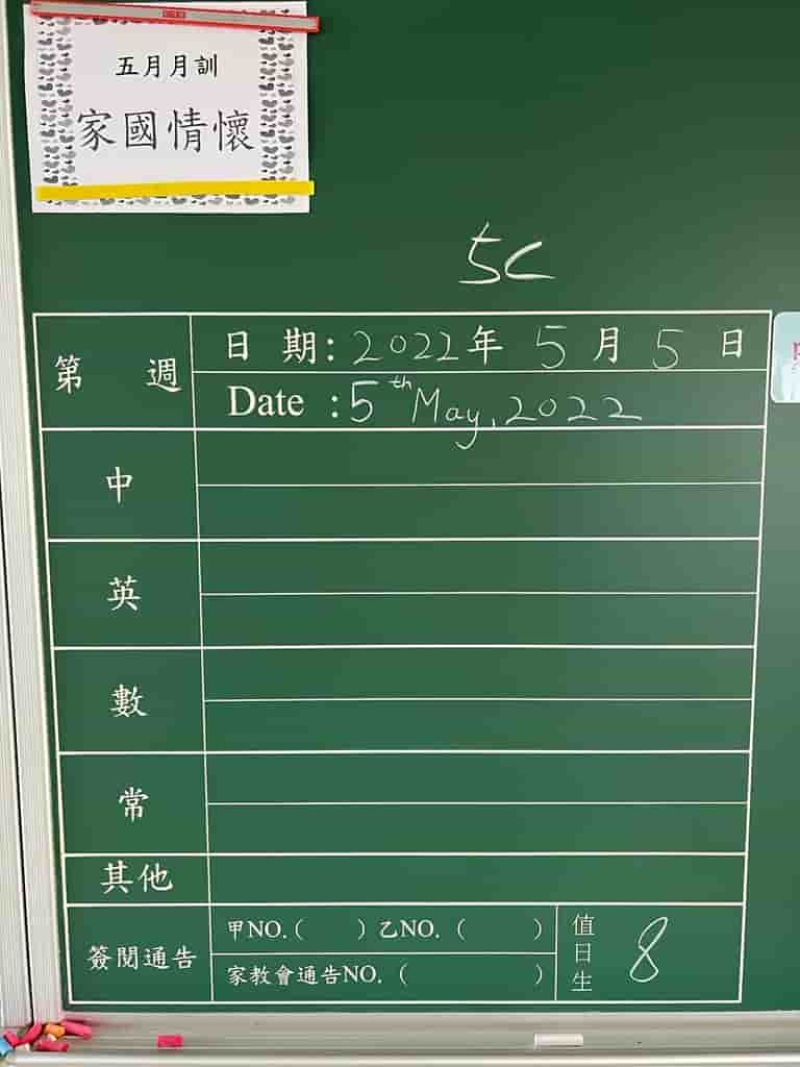 五月月訓
家國情懷
5C
第 週
日 期: 2022年 5 月 5 日
Date : 5th May, 2022
中
英
數
常
其他
簽閱通告
甲NO.( ) 乙NO. ( )
家教會通告NO. ( )
值日生
8